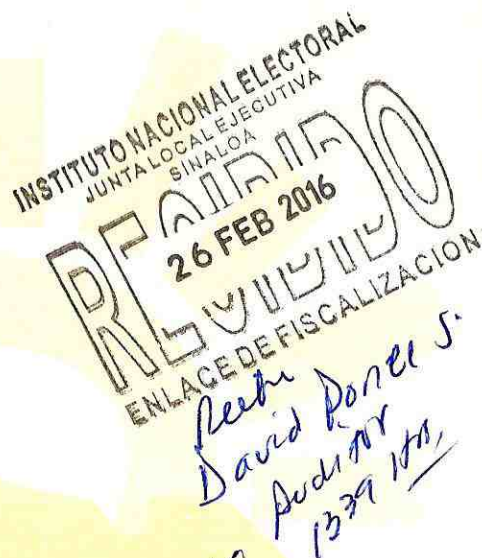 INSTITUTO NACIONAL ELECTORAL
JUNTA LOCAL EJECUTIVA
SINALOA
RECIBIDO
26 FEB 2016
ENLACE DE FISCALIZACION
David Ponce S.
Auditor
1339 Hrs,